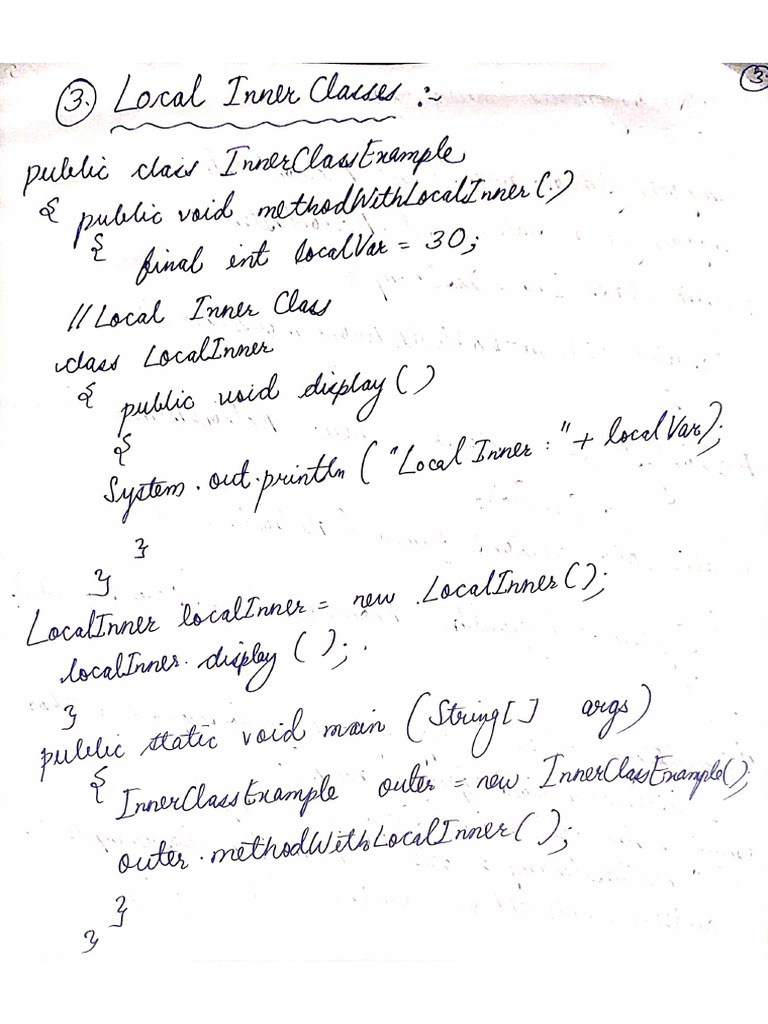 3
3. Local Inner Classes :-
public class InnerClassExample
{ public void methodWithLocalInner()
{ final int localVar = 30;
// Local Inner Class
class LocalInner
{ public void display()
{
System.out.println("Local Inner : " + localVar);
}
}
LocalInner localInner = new LocalInner();
localInner.display();
}
public static void main (String[] args)
{ InnerClassExample outer = new InnerClassExample();
outer.methodWithLocalInner();
}
}